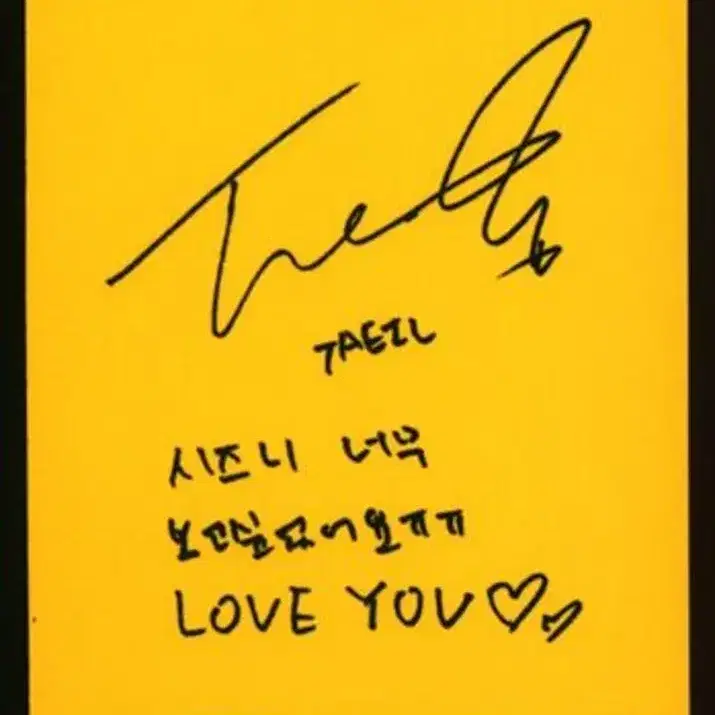 TAEIL
시즈니 너무
보고싶었어요ㅠㅠ
LOVE YOU♡♡